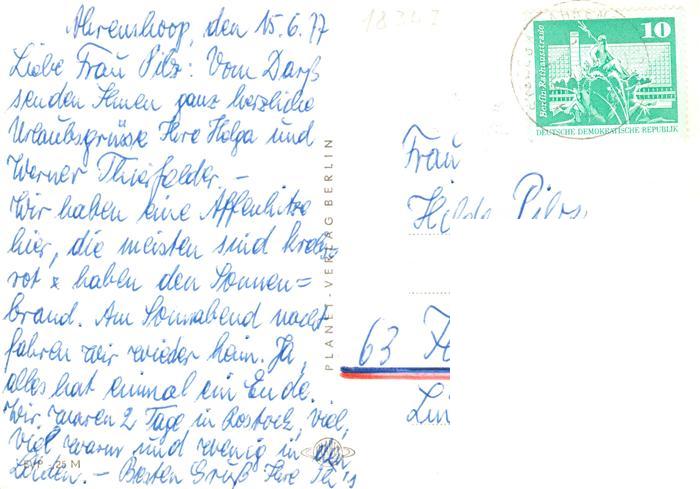 Ahrenshoop, den 15.6.77
Liebe Frau Pilz: Vom Darß
senden Ihnen ganz herzliche
Urlaubsgrüsse Ihre Helga und
Werner Thierfelder. –
Wir haben eine Affenhitze
hier, die meisten sind krebs-
rot & haben den Sonnen=
brand. Am Sonnabend nacht
fahren wir wieder heim. Ja,
alles hat einmal ein Ende.
Wir waren 2 Tage in Rostock, viel,
viel warm und wenig in den
Läden. – Besten Gruß Ihre
EVP -,25 M
PLANET-VERLAG BERLIN
18347
10
Berlin, Rathausstraße
DEUTSCHE DEMOKRATISCHE REPUBLIK
Frau
Hilde Pilz
63